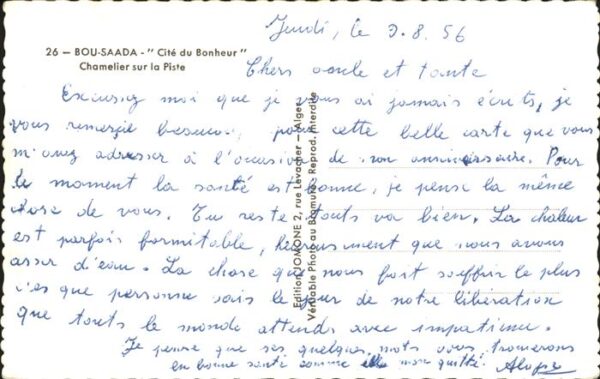 Jeudi, le 9.8.56
26 — BOU-SAADA - " Cité du Bonheur "
Chamelier sur la Piste
Chers oncle et tante
Excusez moi que je vous ai jamais écrits, je
vous remerçie beaucoup, pour cette belle carte que vous
m'avez adresser à l'occasion de mon anniverssaire. Pour
le moment la santé est bonne, je pense la même
chose de vous. Tu reste touts va bien. La chaleur
est parfois formitable, heureusment que nous avons
asser d'eau. La chose que nous fort souffrir le plus
c'es que personne sais le jour de notre libération
que touts le monde attends avec impatience.
Je pense que ses quelques mots vous trouverons
en bonne santé comme elle mon quitté.
Edition JOMONE 2, rue Levacher — Alger
Véritable Photo au Bromure. Reprod. Interdite